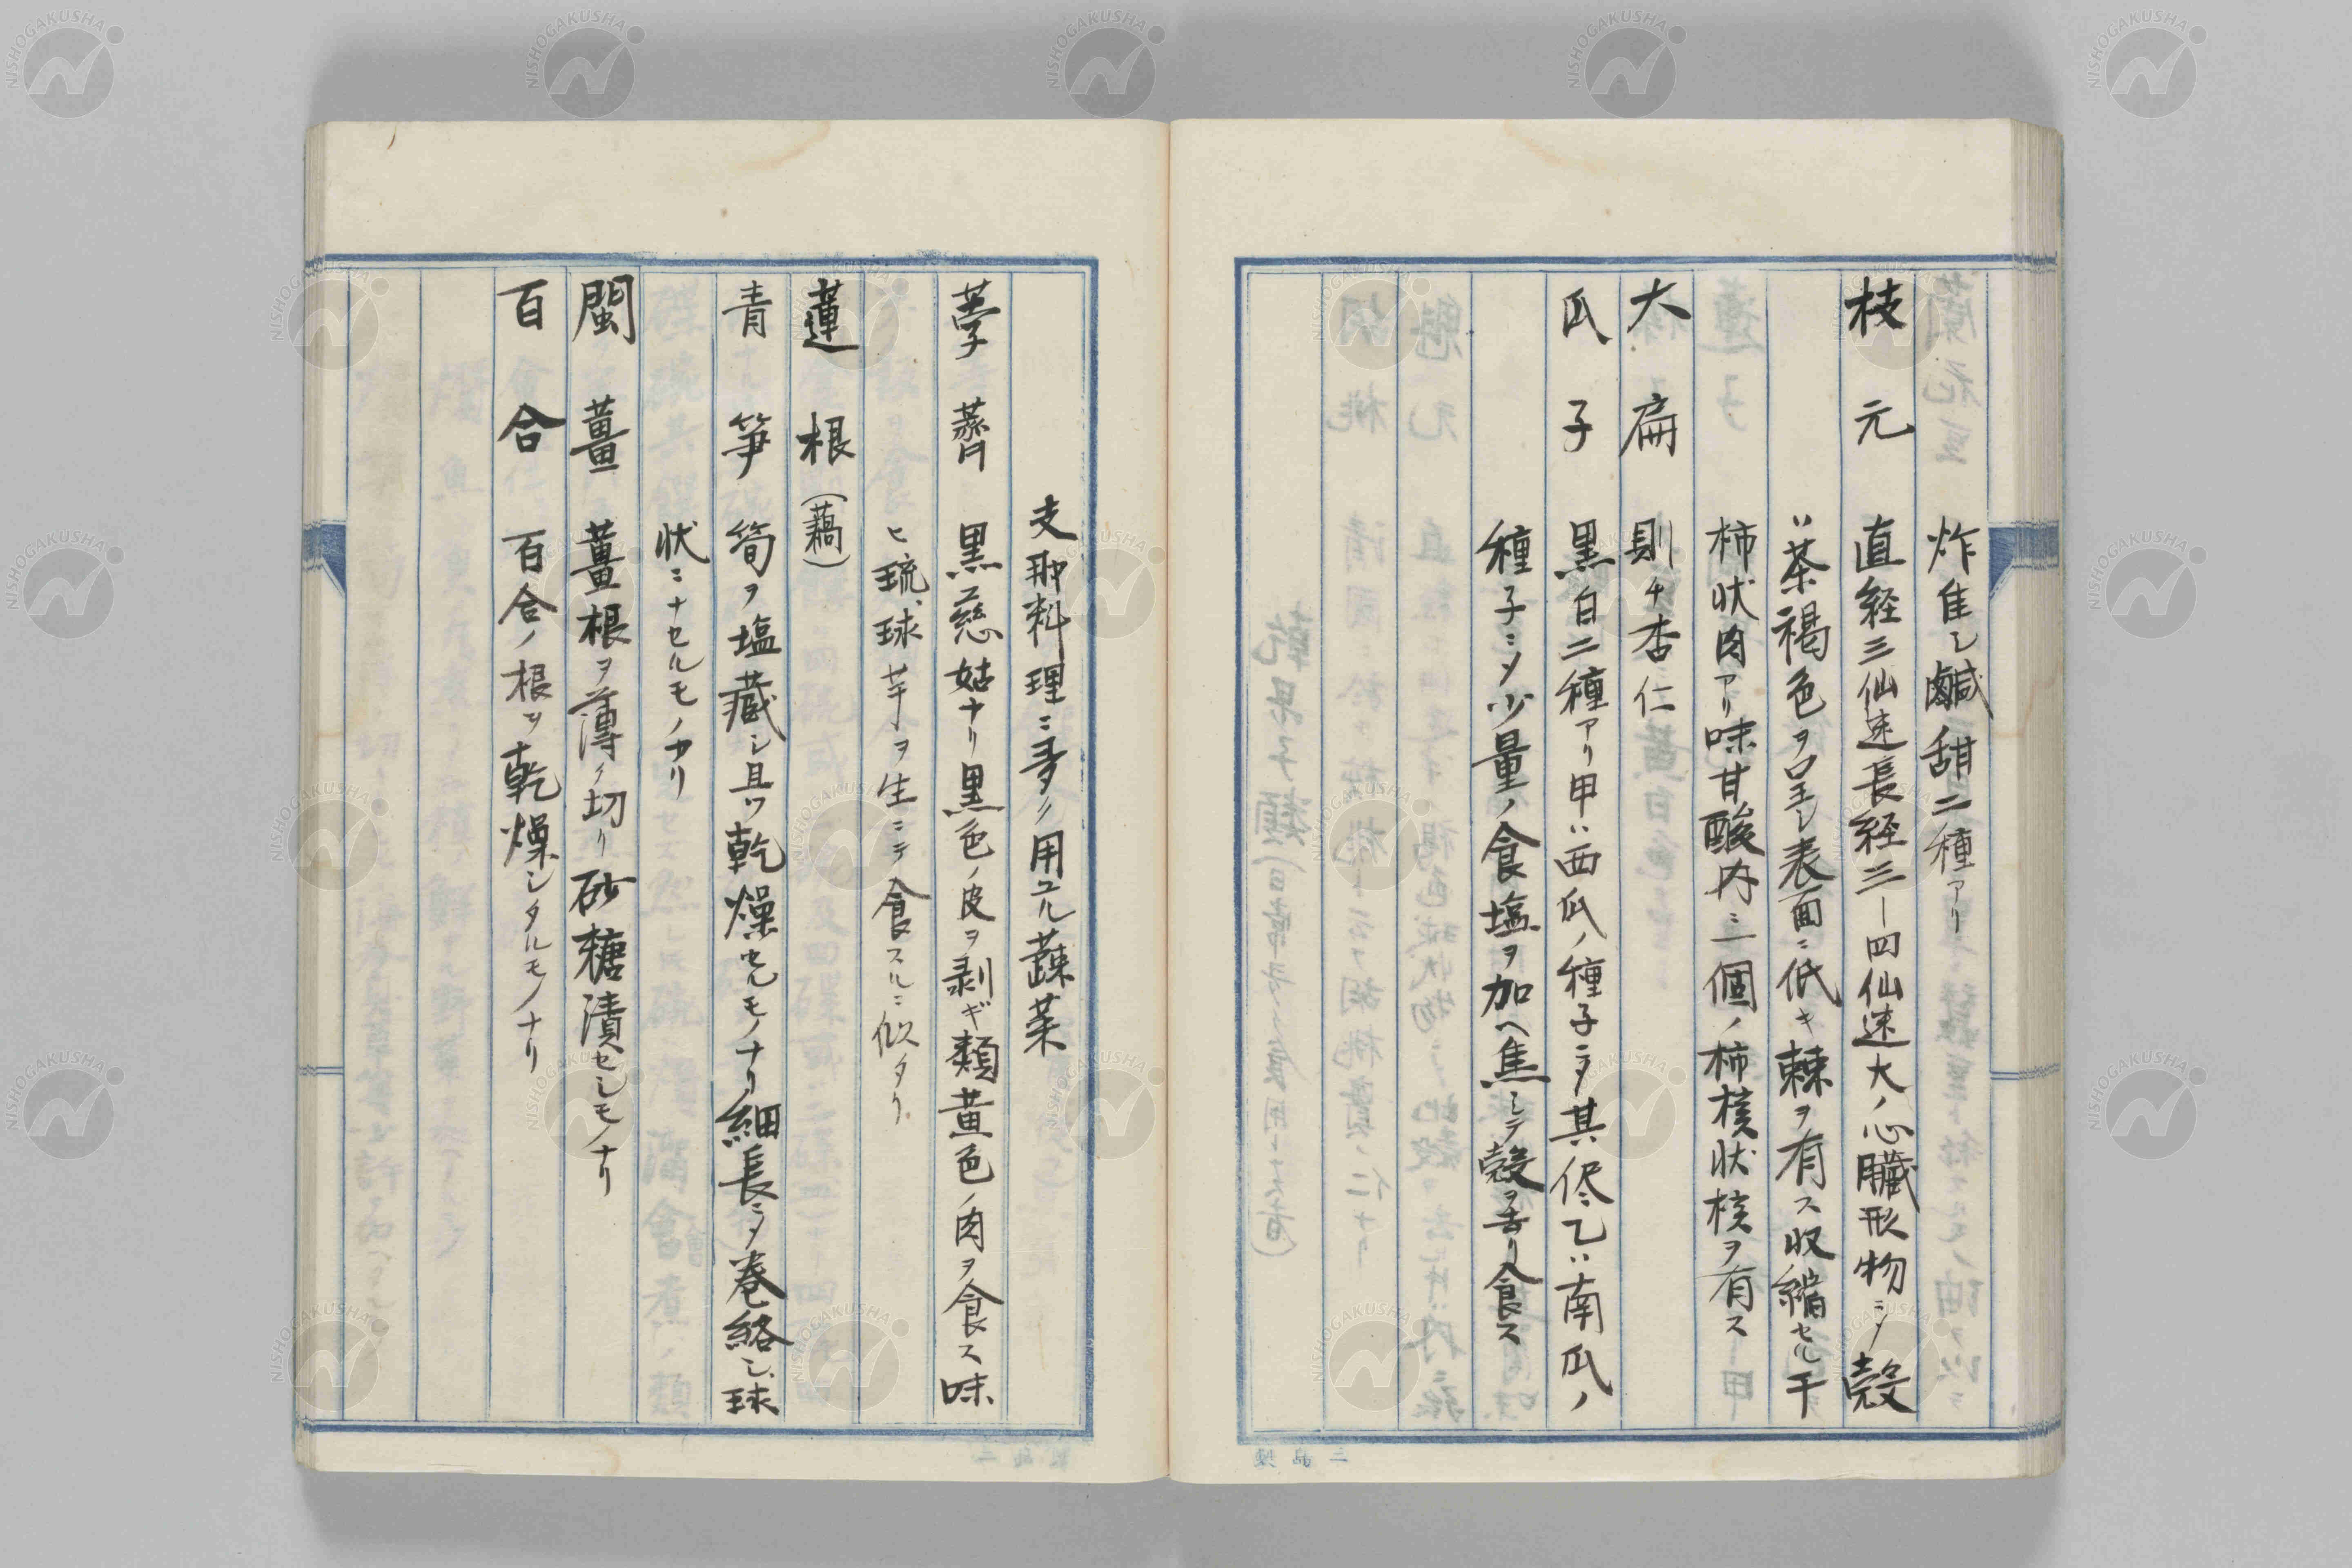 炸隹シ鹹甜二種アリ
枝元 直経三仙迷長経三―四仙迷大ノ心臓形物ニシテ殻
ハ茶褐色ヲ呈シ表面ニ低キ棘ヲ有ス收縮セル干
柿状肉アリ味甘酸内ニ一個ノ柿核状核ヲ有ス
大扁 則チ杏仁
瓜子 黒白二種アリ甲ハ西瓜ノ種子ニシテ其侭乙ハ南瓜ノ
種子ニシテ少量ノ食塩ヲ加ヘ焦シテ殻ヲ去リ食ス
支那料理ニ多ク用ユル蔬菜
荸薺 黒慈姑ナリ黒色ノ皮ヲ剥ギ類黄色ノ肉ヲ食ス味
ヒ琉球芋ヲ生ニテ食スルニ似タリ
蓮根(藕)
青笋 筍ヲ塩蔵シ且ツ乾燥セルモノナリ細長ニシテ巻絡シ球
状ニナセルモノアリ
閩薑 薑根ヲ薄ク切リ砂糖漬セシモノナリ
百合 百合ノ根ヲ乾燥シタルモノナリ
NISHOGAKUSHA